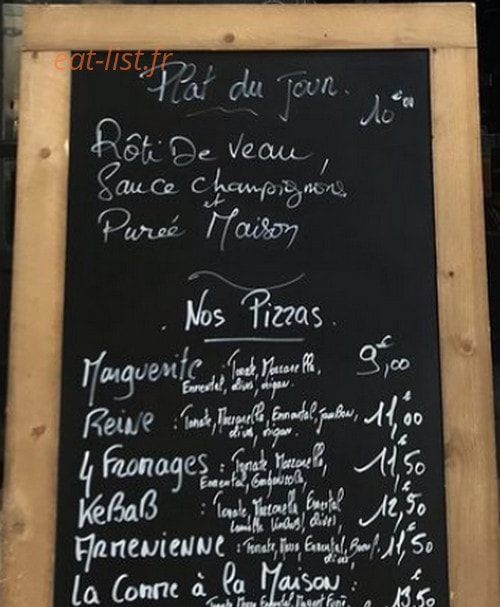 eat-list.fr
Plat du jour.
10€00
Rôti De Veau,
Sauce champignons
et
Pureé Maison
Nos Pizzas.
Marguerite : Tomate, Mozzarella, 9€,00
Emmental, olives, origan.
Reine : Tomate, Mozzarella, Emmental, Jambon, 11€,00
olives, origan.
4 Fromages : Tomate Mozzarella, 11€,50
Emmental, Gorgonzola,
KeBaB : Tomate, Mozzarella Emmental 12€,50
olives,
Armenienne : Tomate, Mozza, Emmental, Boeuf, 11€,50
olives,
La Comme à la Maison : 13€,50
Tomate Mozza, Emmental,